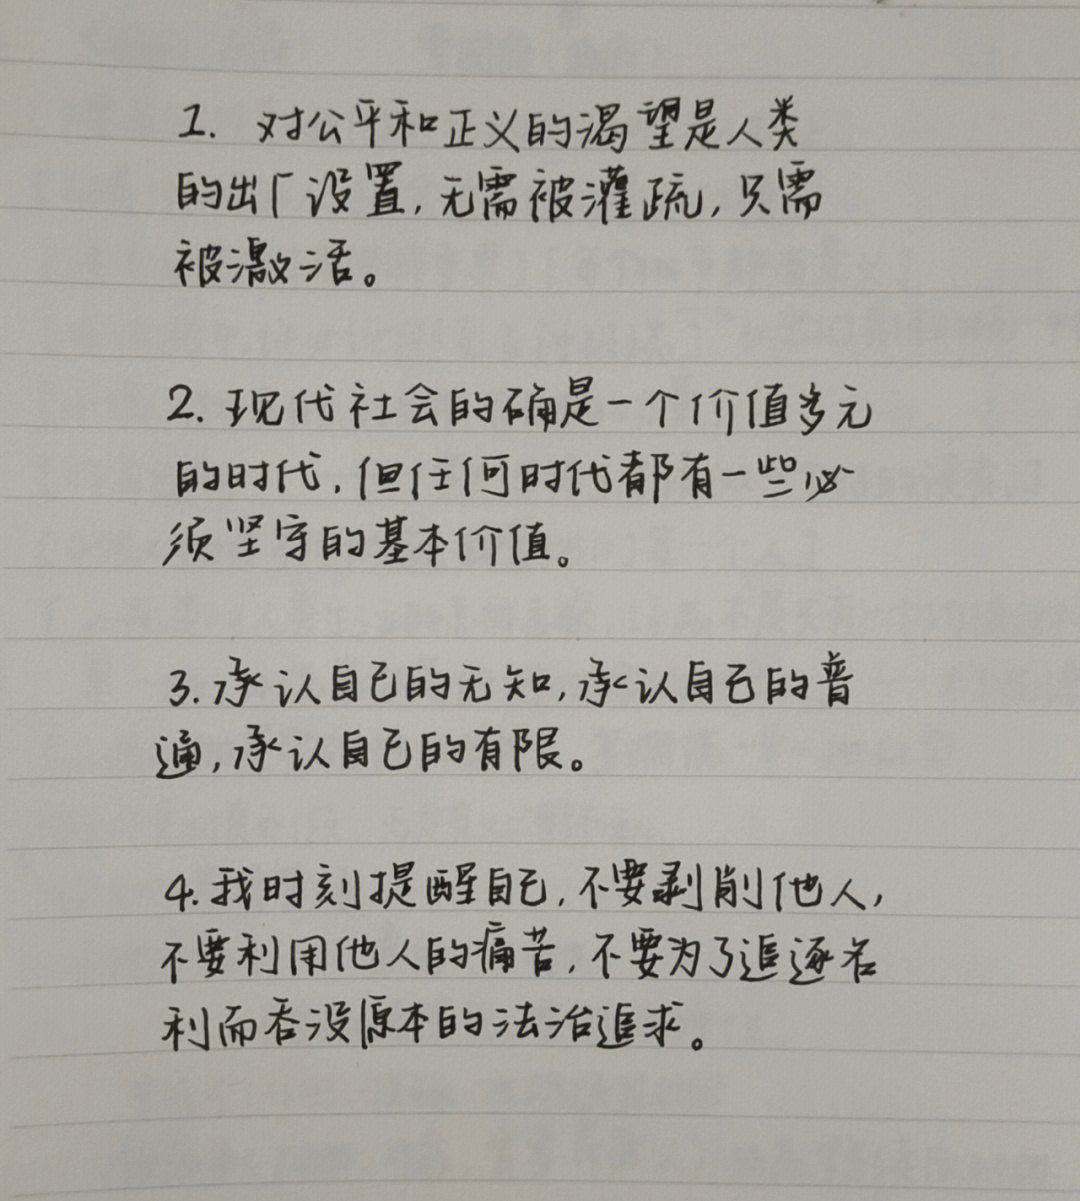 1. 对公平和正义的渴望是人类
的出厂设置,无需被灌疏,只需
被激活。
2. 现代社会的确是一个价值多元
的时代,但任何时代都有一些必
须坚守的基本价值。
3. 承认自己的无知,承认自己的普
通,承认自己的有限。
4. 我时刻提醒自己,不要剥削他人,
不要利用他人的痛苦,不要为了追逐名
利而吞没原本的法治追求。